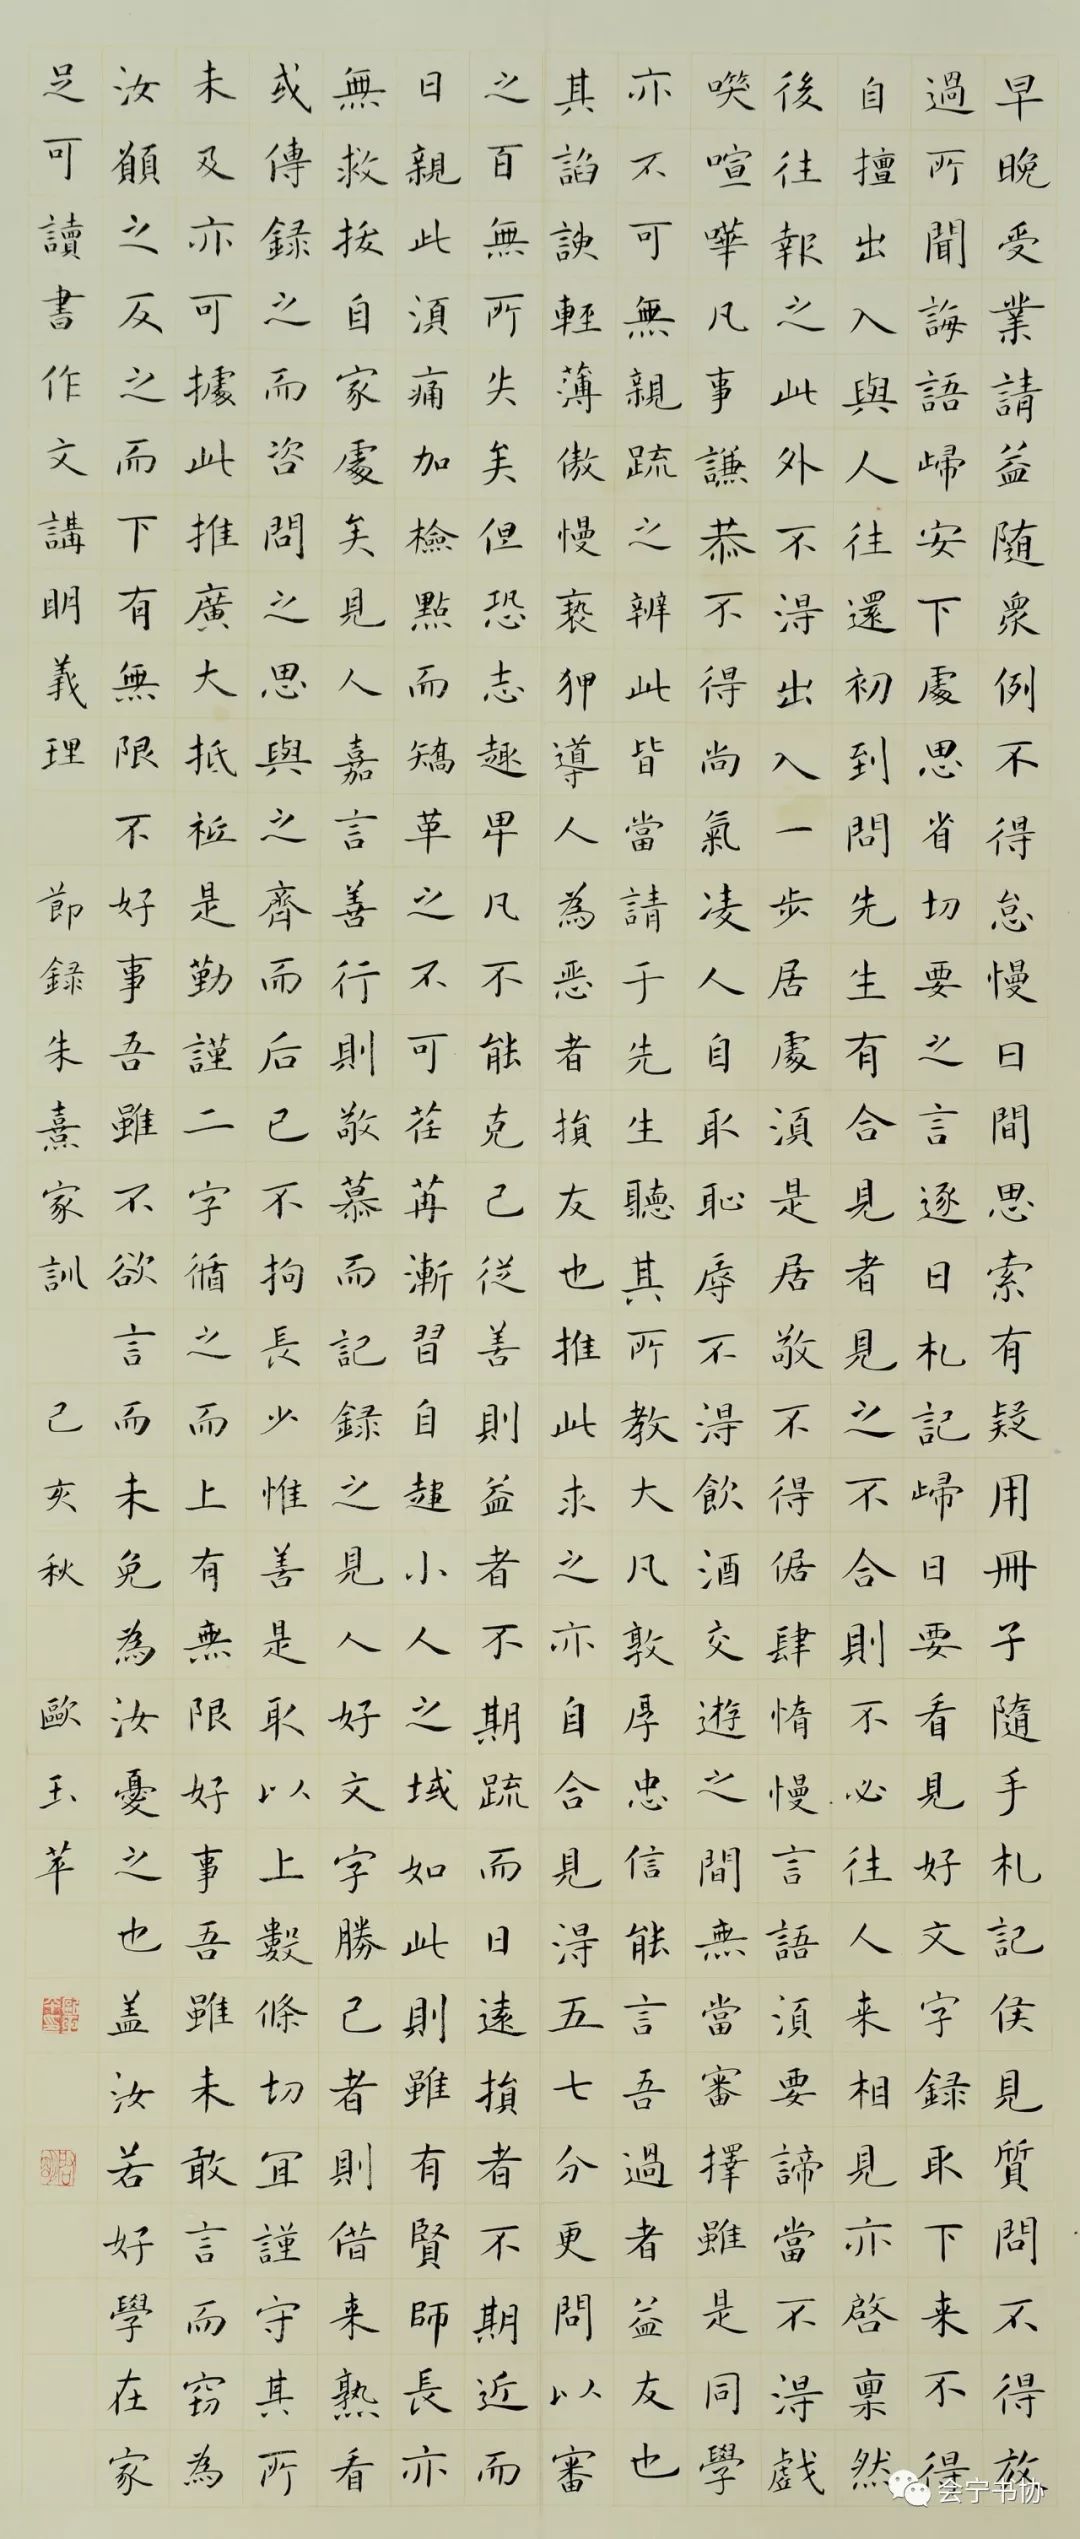 早晚受業請益随衆例不得怠慢日間思索有疑用冊子隨手札記侯見質問不得放
過所聞誨語歸安下處思省切要之言逐日札記歸日要看見好文字録取下来不得
自擅出入與人往還初到問先生有合見者見之不合則不必往人来相見亦啓稟然
後往報之此外不得出入一步居處須是居敬不得倨肆惰慢言語須要諦當不得戲
喫喧嘩凡事謙恭不得尚氣凌人自取恥辱不得飲酒交遊之間無當審擇雖是同學
亦不可無親疏之辨此皆當請于先生聽其所教大凡敦厚忠信能言吾過者益友也
其諂諛輕薄傲慢褻狎導人為惡者損友也推此求之亦自合見得五七分更問以審
之百無所失矣但恐志趣卑凡不能克己從善則益者不期疏而日遠損者不期近而
日親此須痛加檢點而矯革之不可荏苒漸習自趨小人之域如此則雖有賢師長亦
無救拔自家處矣見人嘉言善行則敬慕而記録之見人好文字勝己者則借来熟看
或傳録之而咨問之思與之齊而后已不拘長少惟善是取以上數條切宜謹守其所
未及亦可據此推廣大抵衹是勤謹二字循之而上有無限好事吾雖未敢言而窃為
汝願之反之而下有無限不好事吾雖不欲言而未免為汝憂之也盖汝若好學在家
足可讀書作文講明義理 節録朱熹家訓 己亥秋 歐玉苹
会宁书协